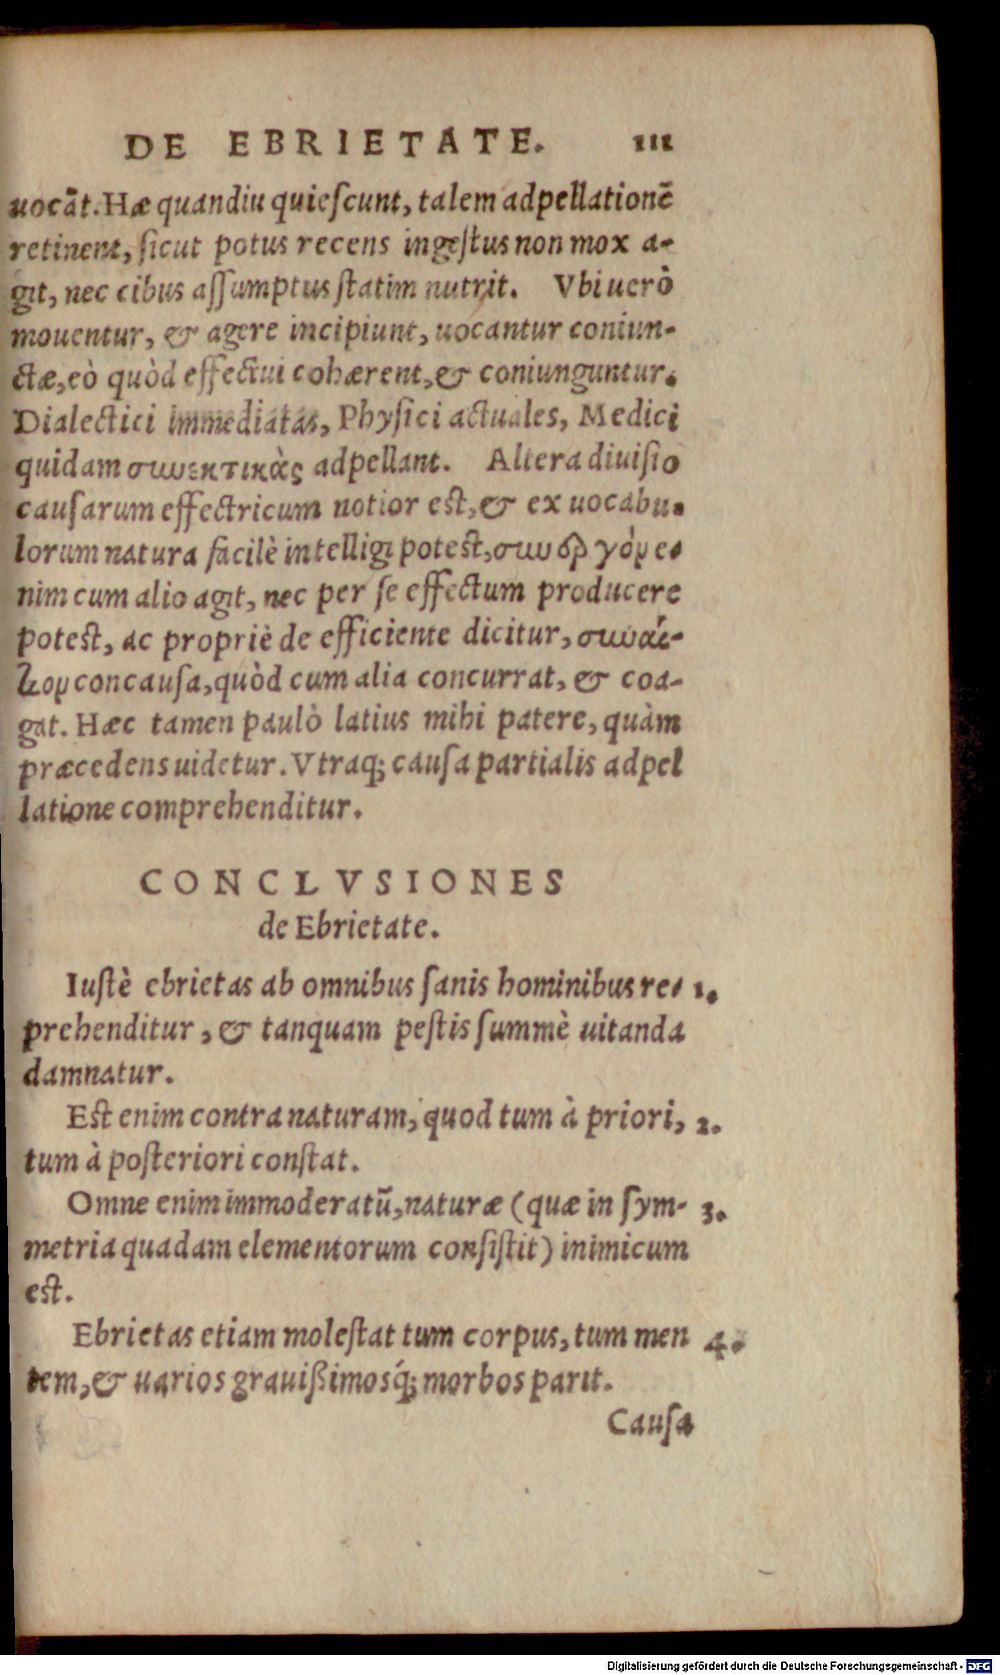 DE EBRIETATE. 111
uocãt. Hæ quandiu quiescunt, talem adpellationẽ
retinent, sicut potus recens ingestus non mox a-
git, nec cibus assumptus statim nutrit. Vbi uerò
mouentur, & agere incipiunt, uocantur coniun-
ctæ, eò quòd effectui cohærent, & coniunguntur.
Dialectici immediatas, Physici actuales, Medici
quidam συνεκτικὰς adpellant. Altera diuisio
causarum effectricum notior est, & ex uocabu-
lorum natura facilè intelligi potest, συνεργὸν e-
nim cum alio agit, nec per se effectum producere
potest, ac propriè de efficiente dicitur, συναί-
τιον concausa, quòd cum alia concurrat, & coa-
gat. Hæc tamen paulò latius mihi patere, quàm
præcedens uidetur. Vtraq; causa partialis adpel
latione comprehenditur.
CONCLVSIONES
de Ebrietate.
Iustè ebrietas ab omnibus sanis hominibus re- 1.
prehenditur, & tanquam pestis summè uitanda
damnatur.
Est enim contra naturam, quod tum à priori, 2.
tum à posteriori constat.
Omne enim immoderatũ, naturæ (quæ in sym- 3.
metria quadam elementorum consistit) inimicum
est.
Ebrietas etiam molestat tum corpus, tum men 4.
tem, & uarios grauißimosq́; morbos parit.
Causa
Digitalisierung gefördert durch die Deutsche Forschungsgemeinschaft - DFG